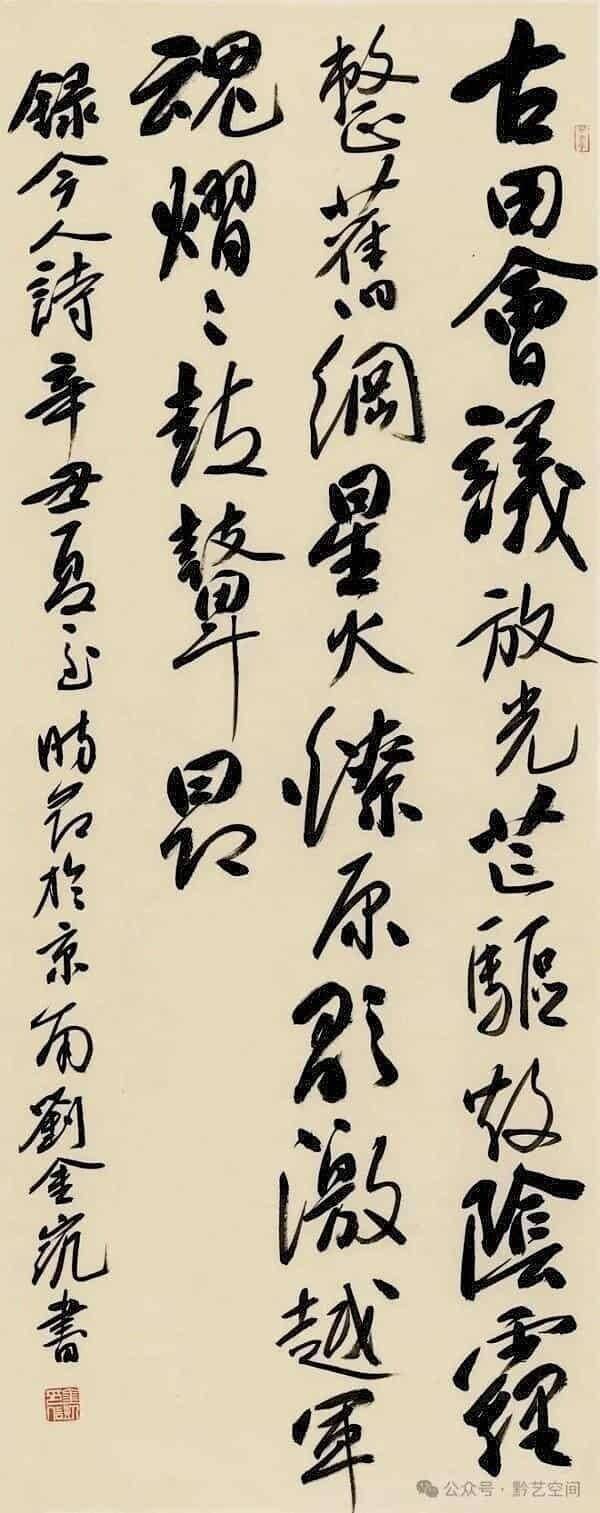 古田會議放光芒驅散陰霾
整舊綱星火燎原歌激越軍
魂熠〻鼓鼙昂
錄今人詩辛丑夏至時節於京南劉金凱書
公众号 · 黔艺空间